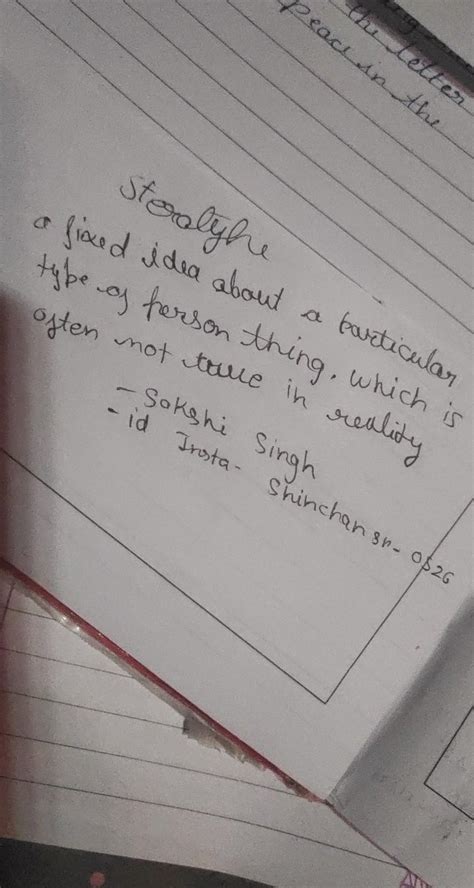 the letter
peace in the
Steratyhe
a fixed idea about a particular
type of person thing. which is
often not true in reality
- Sakshi Singh
- id Insta - Shinchan sr - 0526